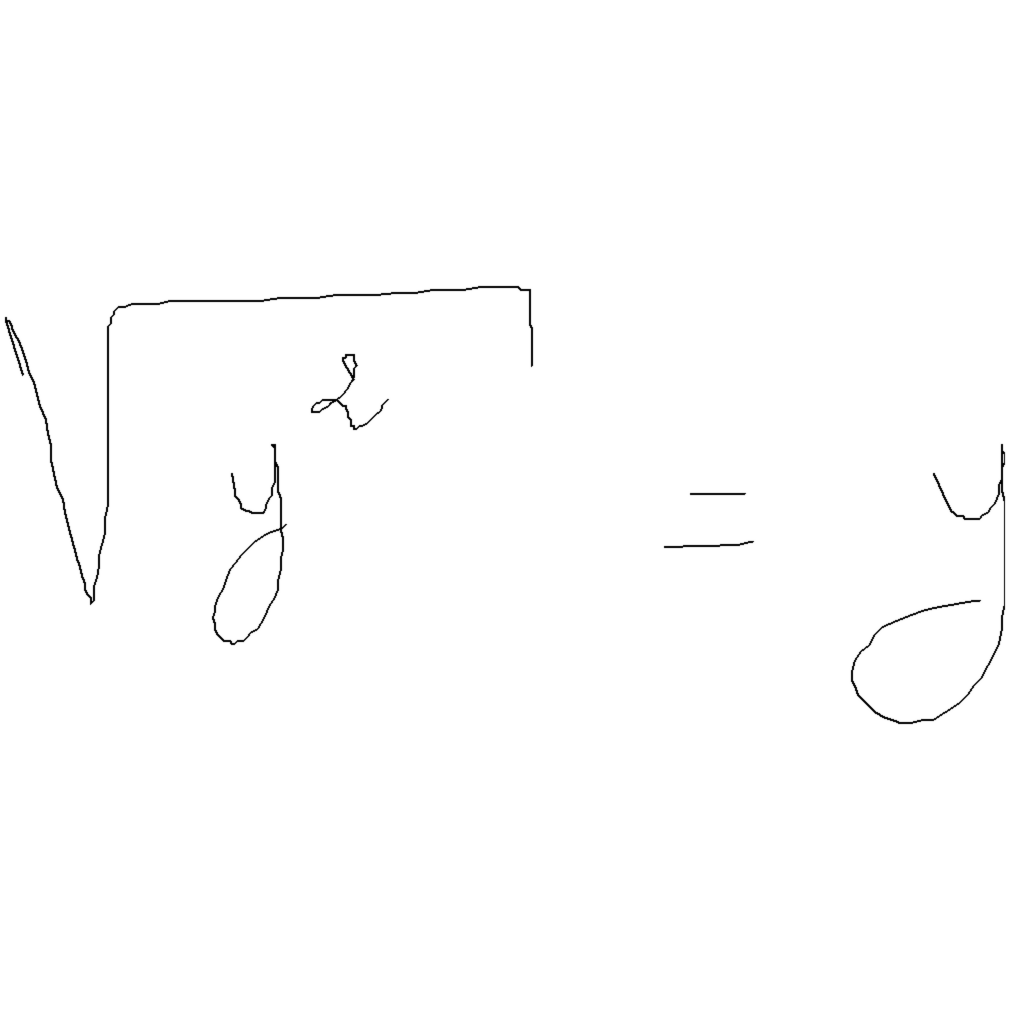 √y² = y